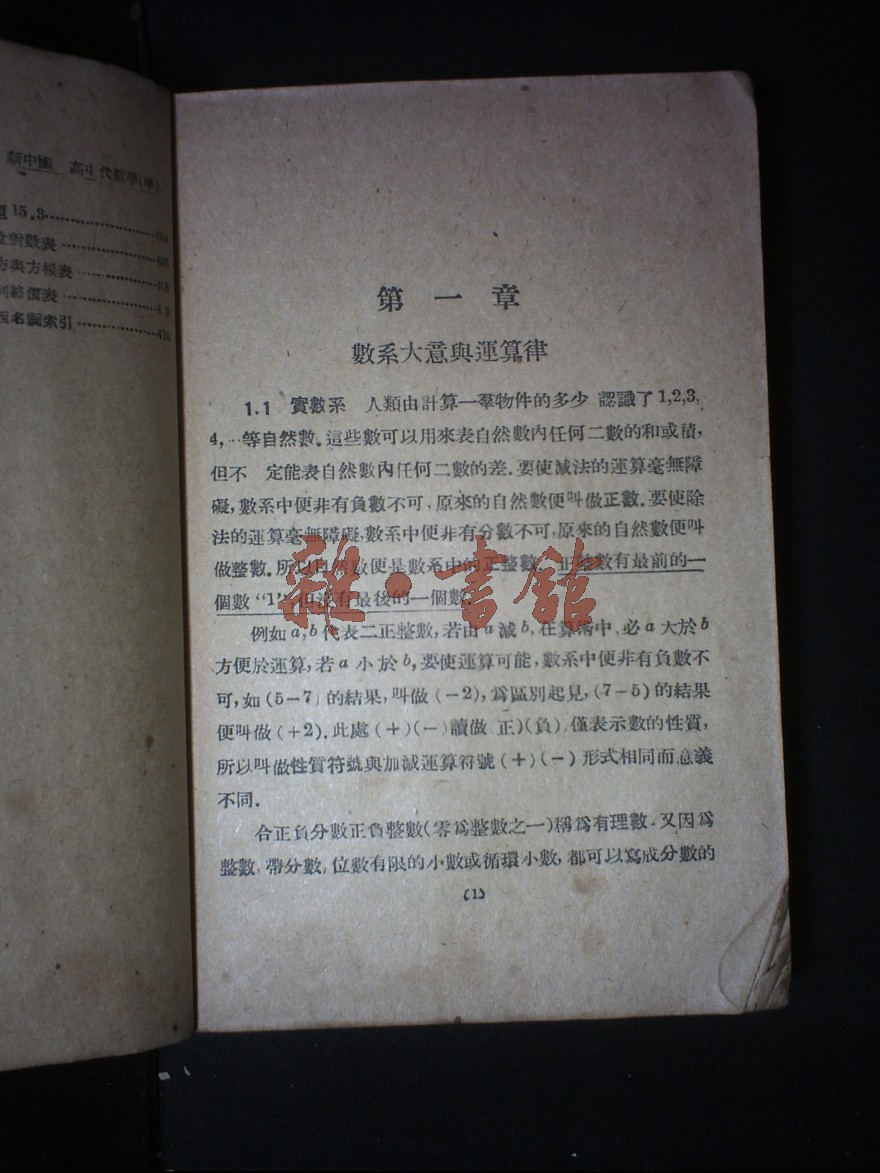 新中國 高中代數學(甲)
題 15.3
對數表
方與方根表
利終價表
西名詞索引
第一章
數系大意與運算律
1.1 實數系 人類由計算一羣物件的多少 認識了1,2,3,
4,…等自然數.這些數可以用來表自然數內任何二數的和或積,
但不 定能表自然數內任何二數的差.要使減法的運算毫無障
礙,數系中便非有負數不可,原來的自然數便叫做正數.要使除
法的運算毫無障礙,數系中便非有分數不可,原來的自然數便叫
做整數.所以自然數便是數系中的正整數.正整數有最前的一
個數“1”,但沒有最後的一個數.
例如a,b代表二正整數,若由a減b,在算術中,必a大於b
方便於運算,若a小於b,要使運算可能,數系中便非有負數不
可,如(5-7)的結果,叫做(-2),爲區別起見,(7-5)的結果
便叫做(+2).此處(+)(-)讀做 正)(負),僅表示數的性質,
所以叫做性質符號與加減運算符號(+)(-)形式相同而意義
不同.
合正負分數正負整數(零爲整數之一)稱爲有理數.又因爲
整數,帶分數,位數有限的小數或循環小數,都可以寫成分數的
(1)
雜·書舘